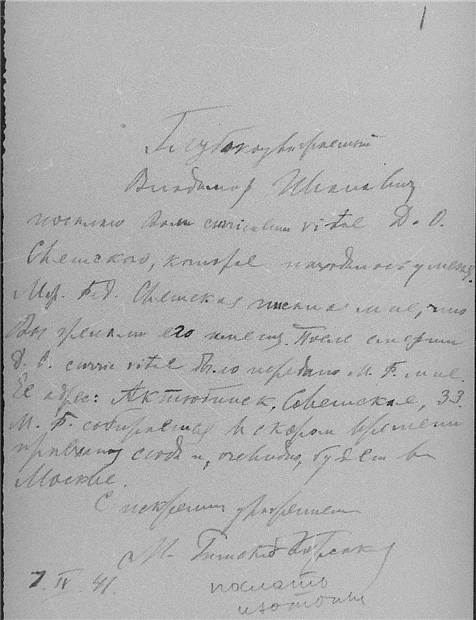 1
Глубокоуважаемый
Владимир Иванович
посылаю Вам curriculum vitae Д. О.
Святского, которое находилось у меня.
Мар. Фед. Святская писала мне, что
Вы желали его иметь. После смерти
Д. О. curric vitae было передано М. Ф. мне
Ее адрес: Актюбинск, Советская, 33.
М. Ф. собирается в скором времени
приехать сюда и, очевидно, будет в
Москве.
С искренним уважением
М.
7. IV. 41.
послать